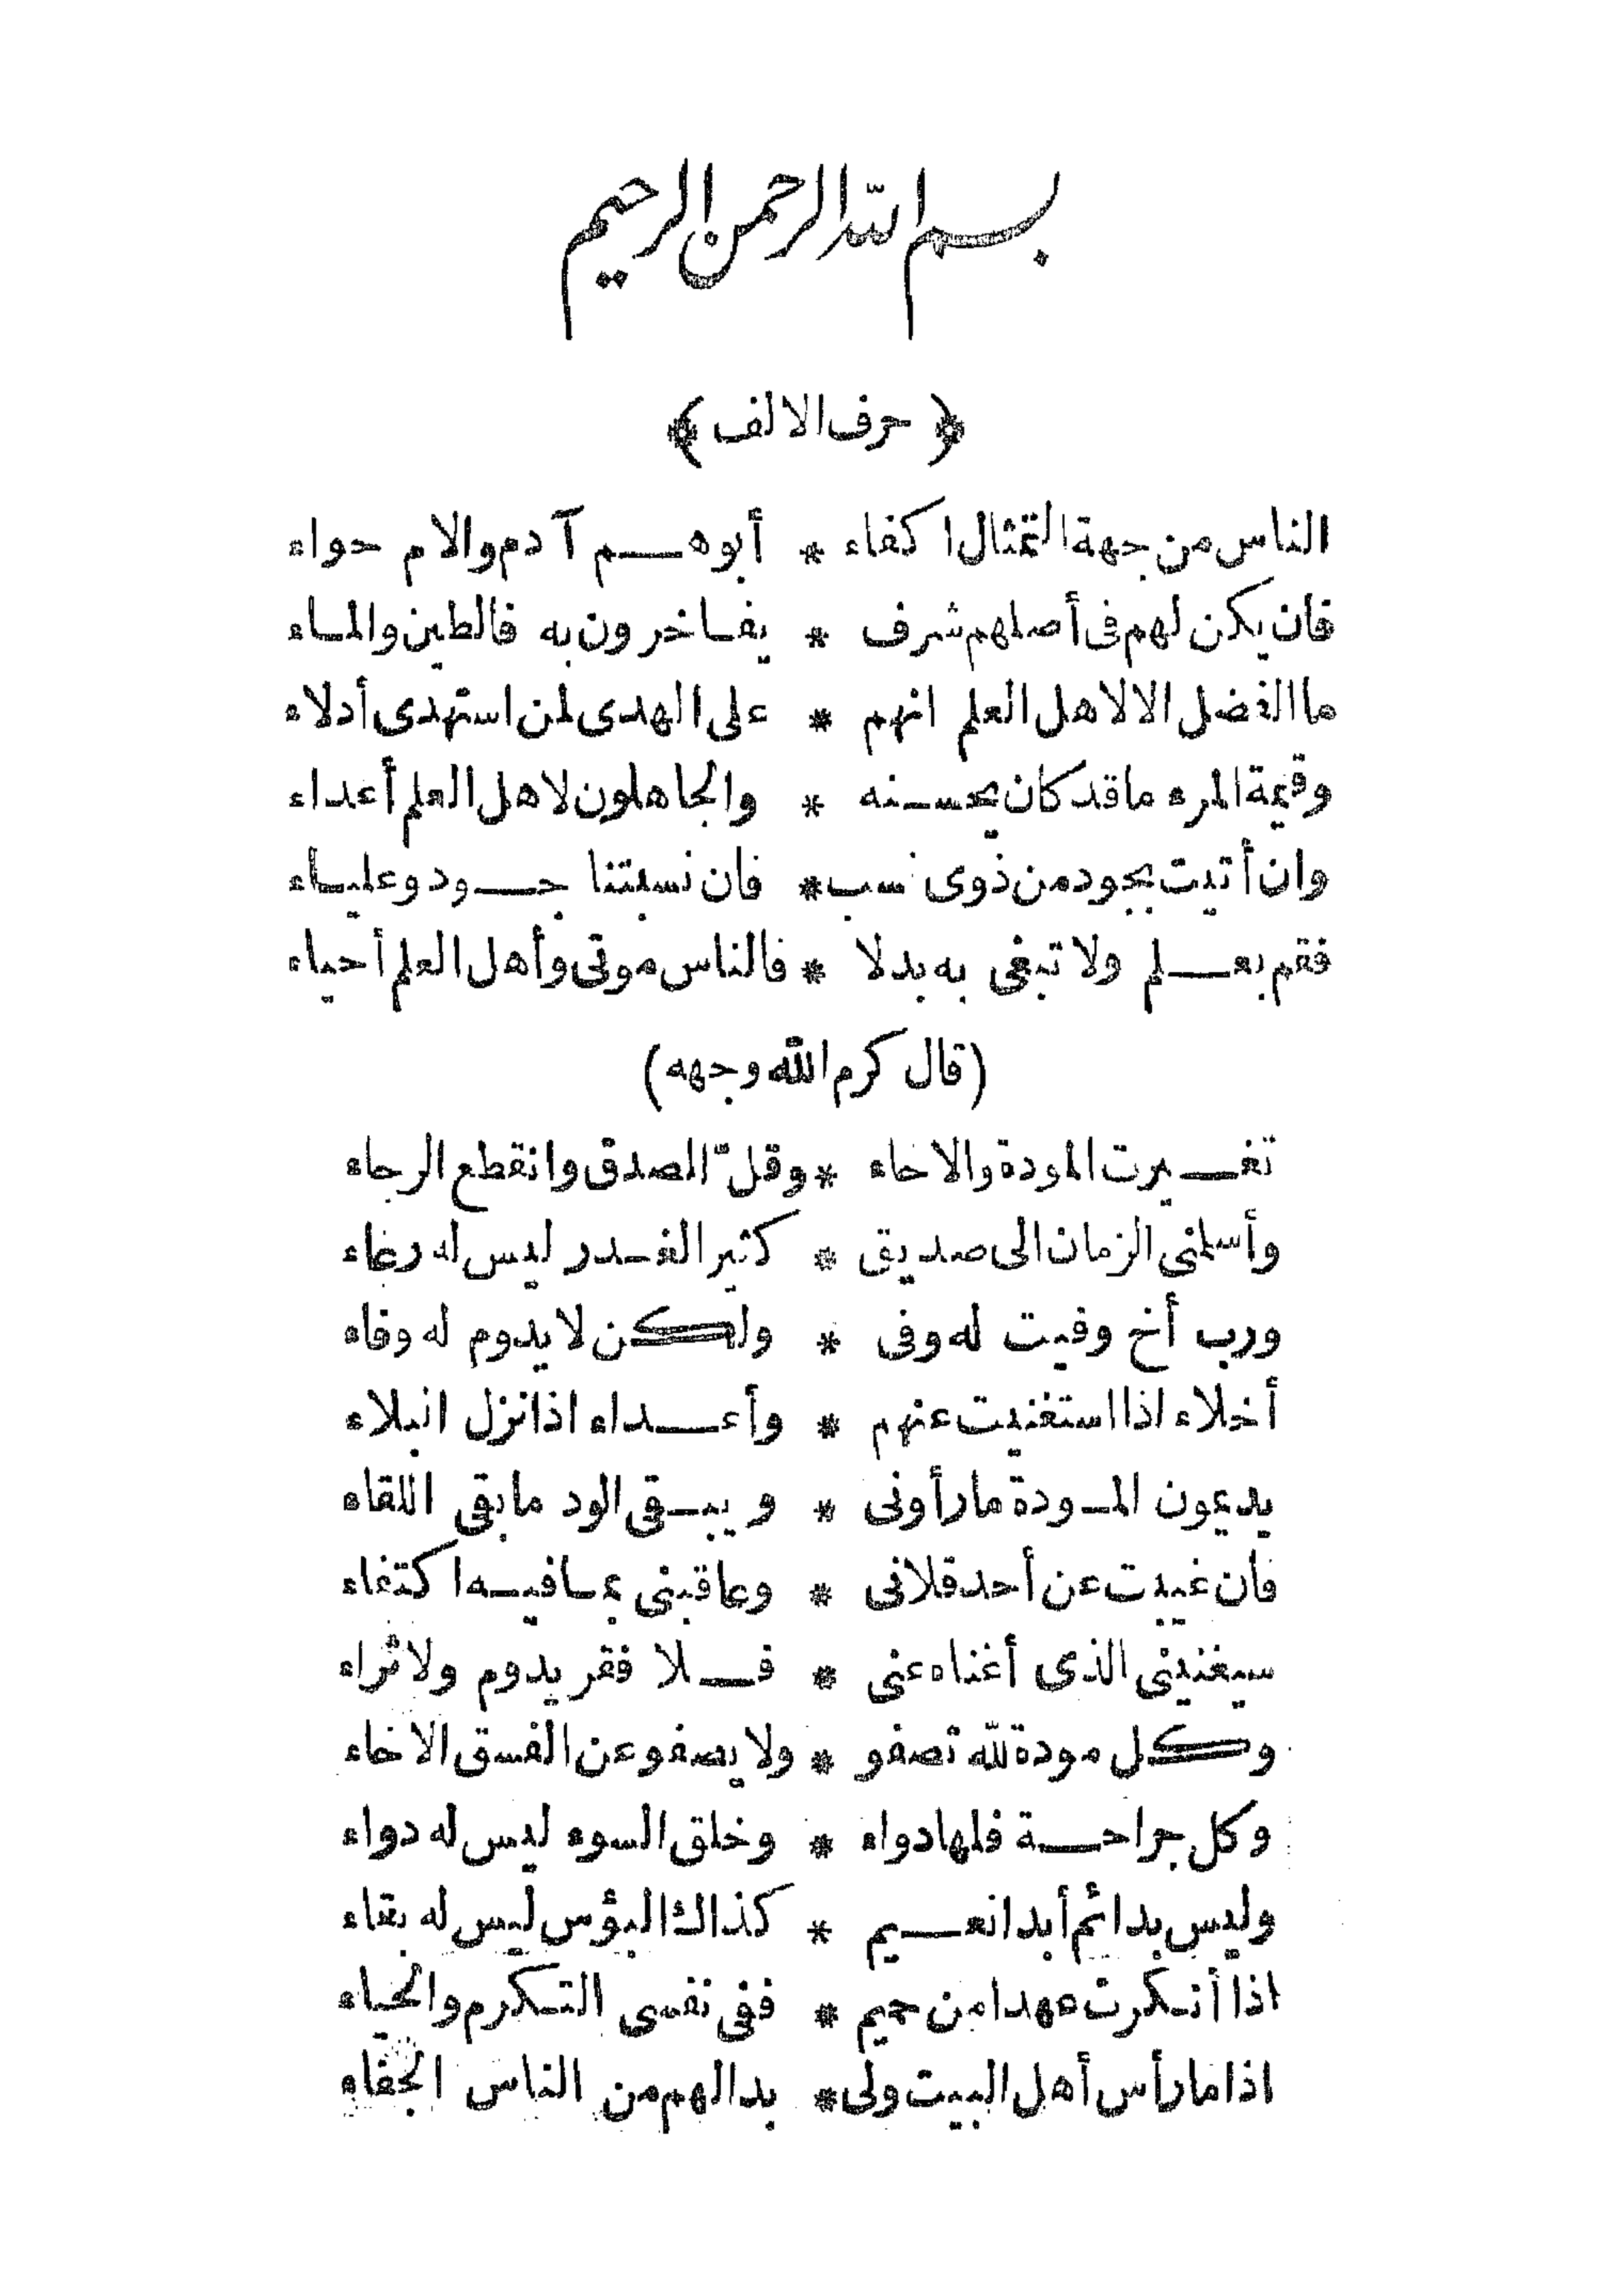 بسم الله الرحمن الرحيم
﴿ حرف الالف ﴾
الناس من جهة التمثال اكفاء * أبوهم آدم والام حواء
فان يكن لهم فى أصلهم شرف * يفاخرون به فالطين والماء
ما الفضل الا لاهل العلم انهم * على الهدى لمن استهدى أدلاء
وقيمة المرء ما قد كان يحسنه * والجاهلون لاهل العلم أعداء
وان أتيت بجود من ذوى نسب * فان نسبتنا جود وعلياء
فقم بعلم ولا تبغى به بدلا * فالناس موتى وأهل العلم أحياء
(قال كرم الله وجهه)
تغيرت المودة والاخاء * وقلّ الصدق وانقطع الرجاء
وأسلمنى الزمان الى صديق * كثير الغدر ليس له رعاء
ورب أخ وفيت له وفى * ولكن لا يدوم له وفاء
أخلاء اذا استغنيت عنهم * وأعداء اذا نزل البلاء
يديمون المودة ما رأونى * ويبقى الود ما بقى اللقاء
فان غيبت عن أحد قلانى * وعاقبنى بما فيه اكتفاء
سيغنينى الذى أغناه عنى * فلا فقر يدوم ولا ثراء
وكل مودة لله تصفو * ولا يصفو عن الفسق الاخاء
وكل جراحة فلها دواء * وخلق السوء ليس له دواء
وليس بدائم أبدا نعيم * كذاك البؤس ليس له بقاء
اذا أنكرت عهدا من حميم * ففى نفسى التكرم والحياء
اذا ما رأس أهل البيت ولى * بدا لهم من الناس الجفاء